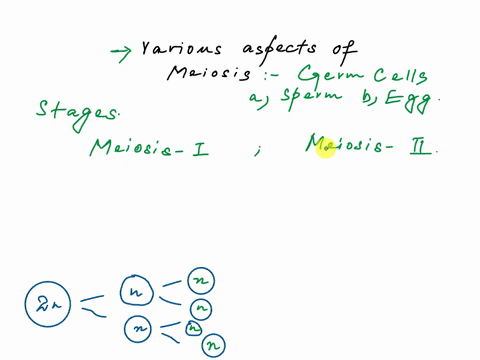 → Various aspects of
Meiosis :- Germ Cells
a, Sperm b, Egg.
Stages.
Meiosis - I ; Meiosis - II.
2n
n
n
n
n
n
n